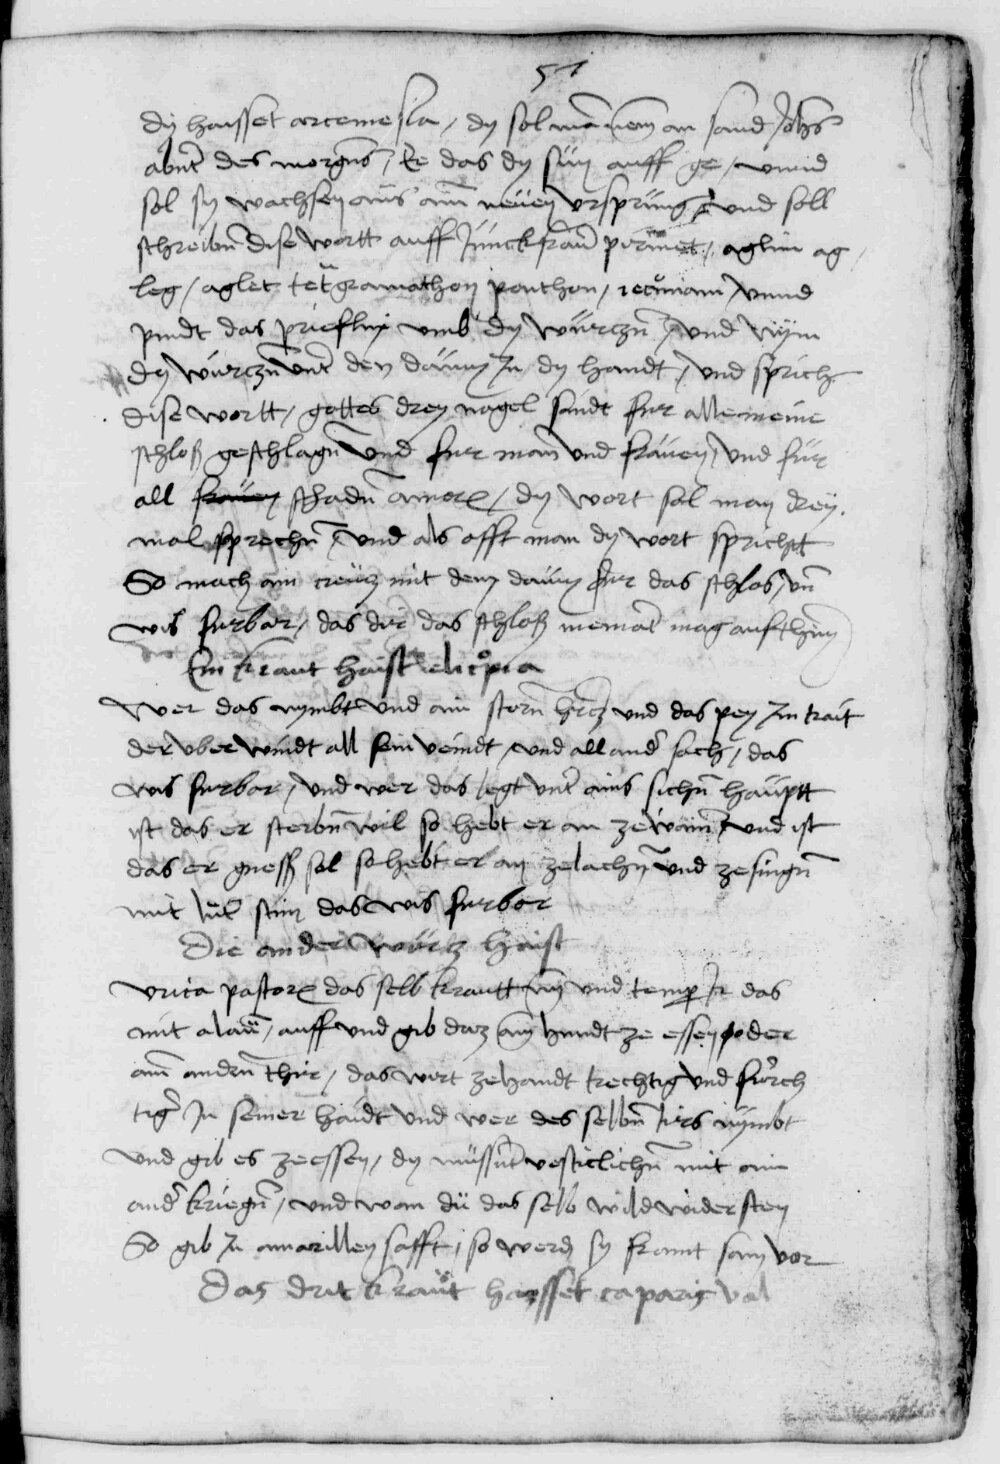 51
dy haysset arcemesia / dy sol man nem an sand Johs
abnt des morgens / Ee das dy sun auff ge / vnnd
sol sy wachsen aus aim neuen vrsprung / vnd soll
schreibn dise wortt auff Junckfraw permet / aglun ag
leg / aglet tetragramathon / vnnd
pindt das prieflin vmb dy wurczn / vnd nym
dy wurczn vnt den daum In dy handt / vnd sprich
dise wortt / gottes drey nagel sindt fur alle meine
schloss geschlagn vnd fur man vnd frauen / vnd fur
all schadn amorem / dy wort sol man drey
mal sprechn / vnd als offt man dy wort spricht
So mach ain creutz mit dem daum fur das schlos / vn
wis furbar / das dir das schloss niemat mag aufthun
Ein kraut haist elicopia
Wer das nymbt vnd ain vnd das pey Im trait
der vberwindt all sein veindt / vnd all ander sach / das
wis furbar / vnd wer das legt vnt ains sichn haupt
ist das er sterbn wil so hebt er an ze wain / vnd ist
das er gness sol so hebt er an ze lachn vnd ze singn
mit lut stim das wis furbar
Die ander wurcz haist
vrica pastorem das selb krautt nym vnd temper Ir das
mit alaun / auff vnd gib daz aim hundt ze essen oder
aim andern thir / das wirt zehandt trechtig vnd furch
tig In seiner haudt vnd wer des selbn tirs nymbt
vnd gib es ze essen / dy mussnt mit ain
ander kriegn / vnd wan du das selb wild widersten
So gib In amarillen safft / so werdn sy frumt sam vor
Das drit kraut haysset caparis val